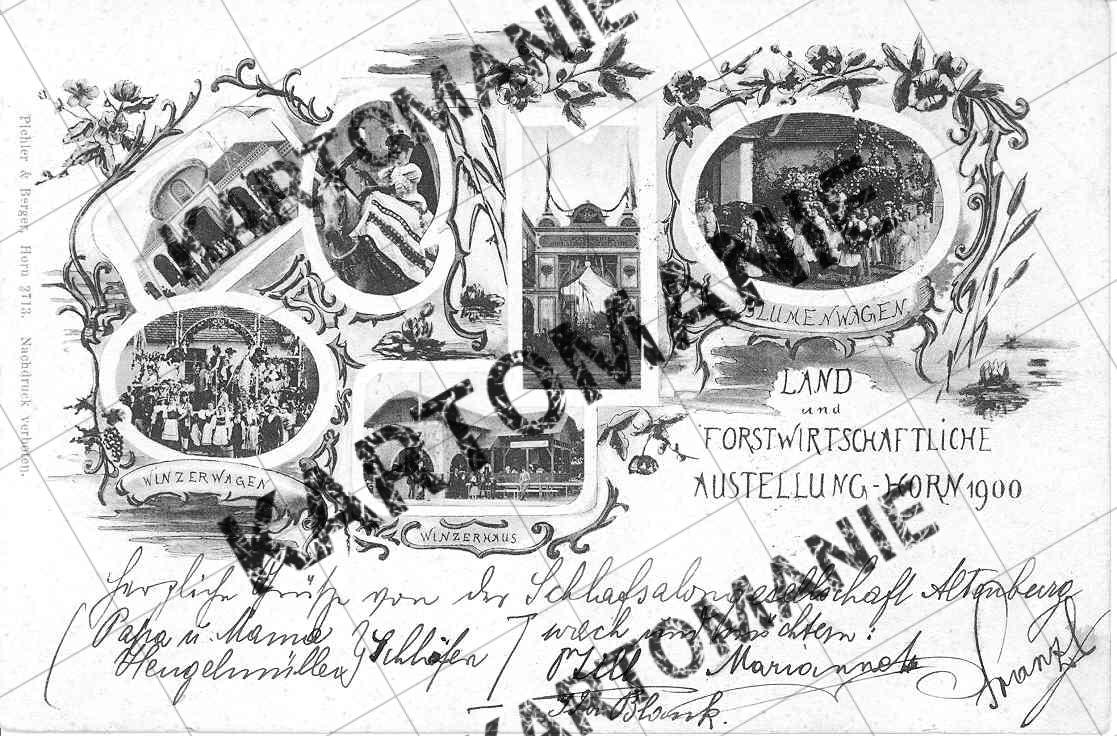 Pichler & Berger, Horn 2713. Nachdruck verboten.
BLUMENWAGEN
LAND
und
FORSTWIRTSCHAFTLICHE
AUSTELLUNG-HORN 1900
WINZERWAGEN
WINZERHAUS
Herzliche Grüße von der Schlafsalongesellschaft Altenburg
Papa u. Mama
Hengelmüller
Schlafen
wach und nüchtern:
Mariannet
Franzl
Blank.
KARTOMANIE
KARTOMANIE
KARTOMANIE
KARTOMANIE